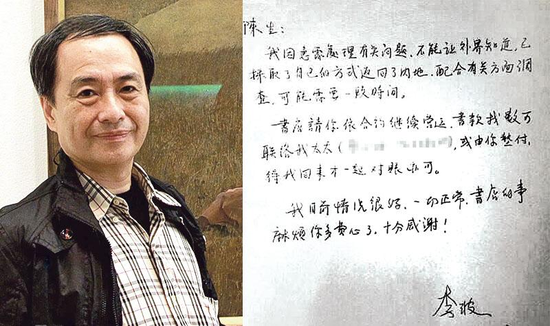 陳生:
我因急需處理有关問題,不能讓外界知道,已
採取了自己的方式返回了内地,配合有关方面調
查,可能需要一段時間。
書店請你依合約继续營运,書款找數可
联络我太太( ),或由你垫付,
待我回来才一起对賬亦可。
我目前情况很好,一切正常,書店的事
麻煩你多費心了,十分感謝!
李波